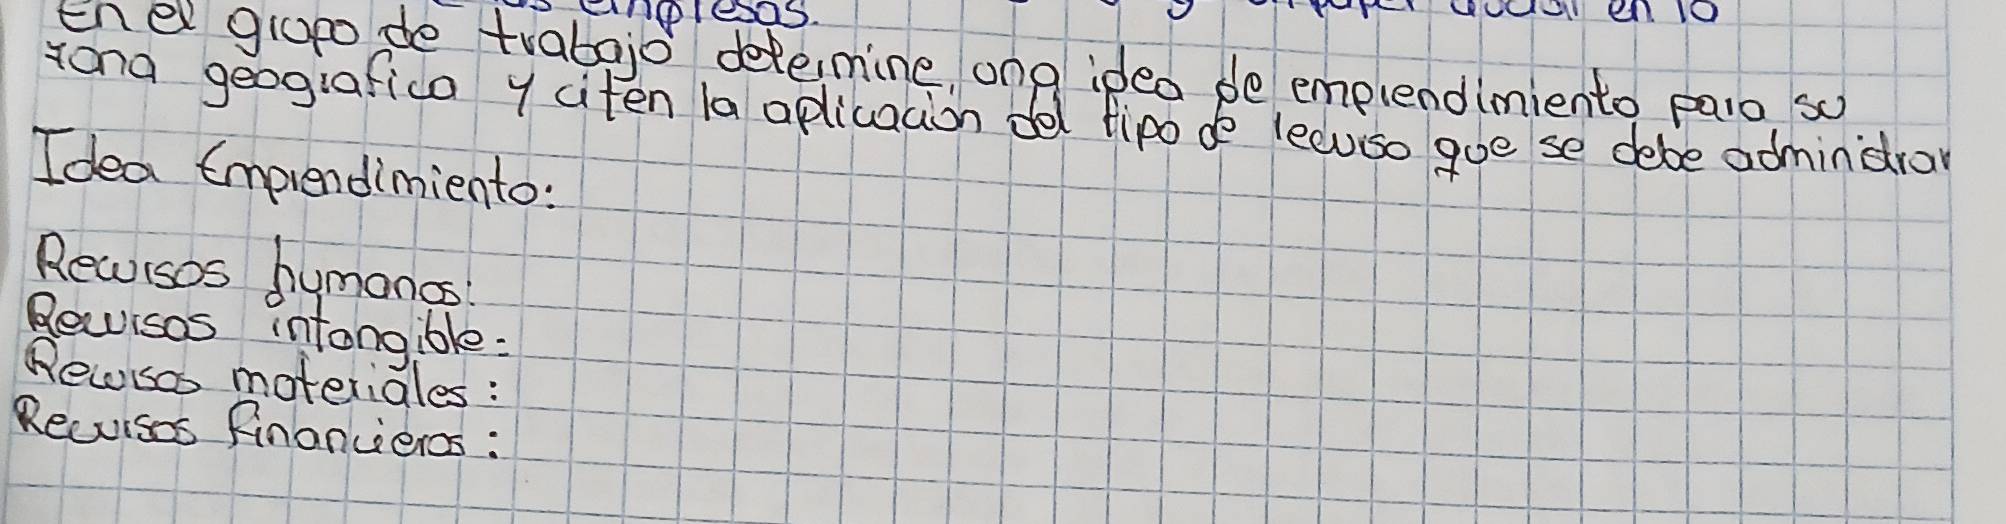 empresas. en lo
En el grupo de trabajo determine una idea de emprendimiento para su
zona geografica y citen la aplicación del tipo de recurso que se debe administrar
Idea Emprendimiento:
Recursos humanos:
Recursos intangible:
Recursos materiales:
Recursos financieros: